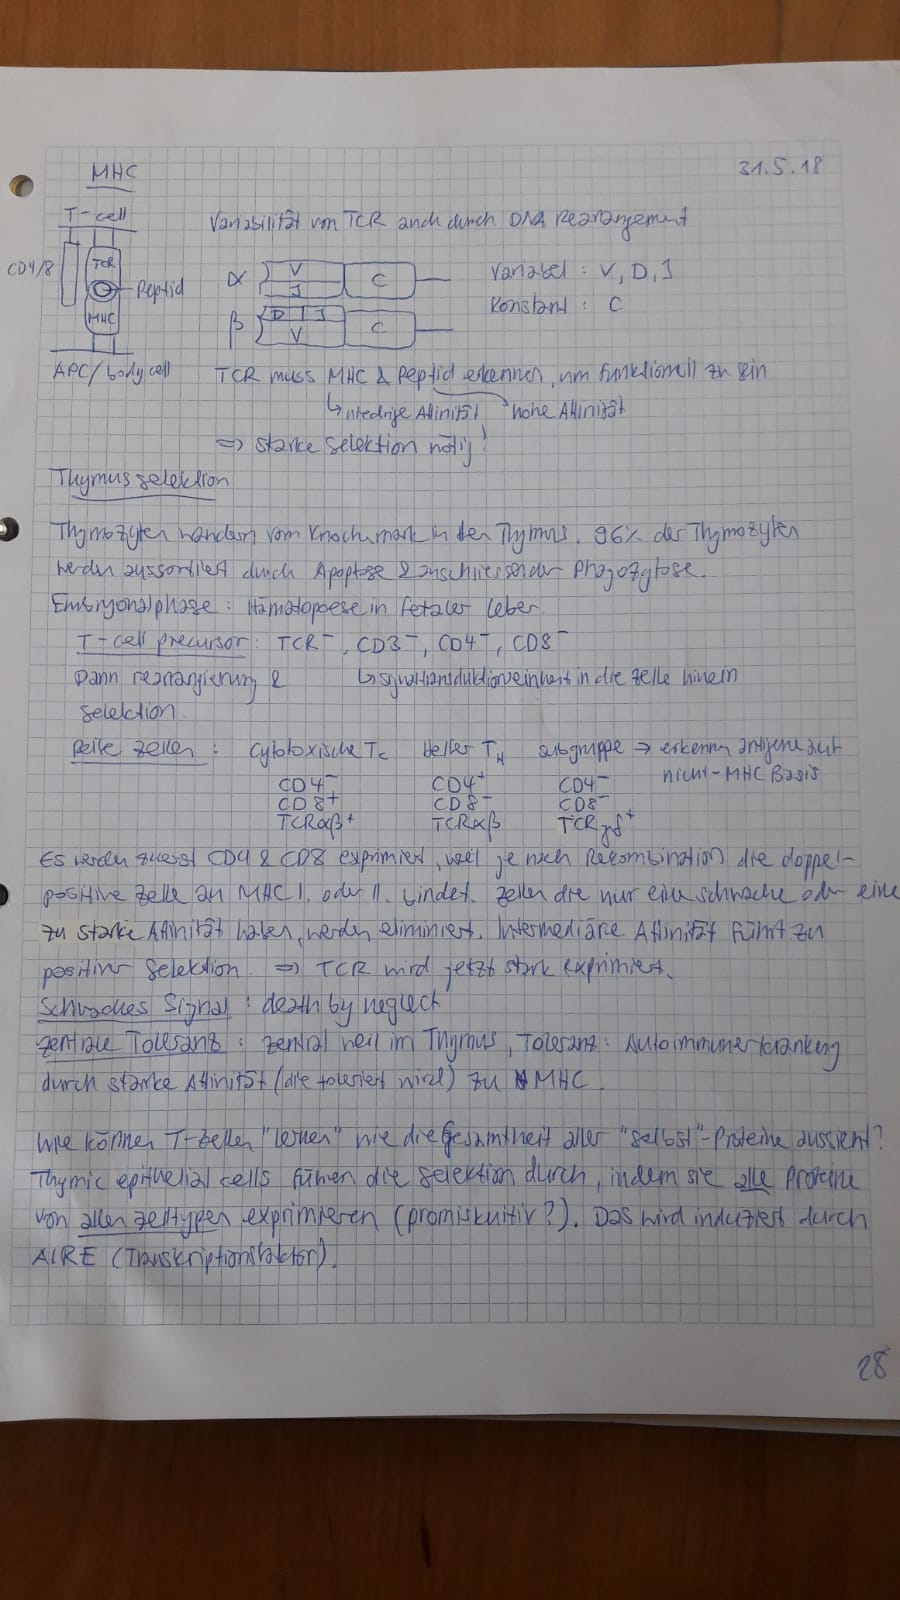 MHC
31.5.18
T-cell
CD4/8
TCR
Peptid
MHC
APC/body cell
Variabilität von TCR auch durch DNA Rearrangement
α V J C
β D J V C
Variabel : V, D, J
Konstant : C
TCR muss MHC & Peptid erkennen, um funktionell zu sein
↳ niedrige Affinität hohe Affinität
⇒ starke Selektion nötig!
Thymusselektion
Thymozyten wandern vom Knochenmark in den Thymus. 96% der Thymozyten
werden aussortiert durch Apoptose & anschliessender Phagozytose.
Embryonalphase : Hämatopoese in fetaler Leber.
T-cell precursor : TCR⁻, CD3⁻, CD4⁻, CD8⁻
Dann rearrangierung & ↳ signaltransduktionseinheit in die Zelle hinein
Selektion.
Reife Zellen : Cytotoxische Tc Helfer TH subgruppe → erkennen antigene auf
nicht-MHC Basis
CD4⁻ CD4⁺ CD4⁻
CD8⁺ CD8⁻ CD8⁻
TCRαβ⁺ TCRαβ TCRγδ⁺
Es werden zuerst CD4 & CD8 exprimiert, weil je nach Recombination die doppel-
positive Zelle an MHC I. oder II. bindet. Zellen die nur eine schwache oder eine
zu starke Affinität haben, werden eliminiert. Intermediäre Affinität führt zu
positiver Selektion. ⇒ TCR wird jetzt stark exprimiert.
Schwaches Signal : death by neglect
Zentrale Toleranz : zentral weil im Thymus, Toleranz : Autoimmunerkrankung
durch starke Affinität (die toleriert wird) zu MHC.
Wie können T-Zellen "lernen" wie die Gesamtheit aller "selbst"-Proteine aussieht?
Thymic epithelial cells führen die Selektion durch, indem sie alle Proteine
von allen Zelltypen exprimieren (promiskuitiv?). Das wird induziert durch
AIRE (Transkriptionsfaktor).
28